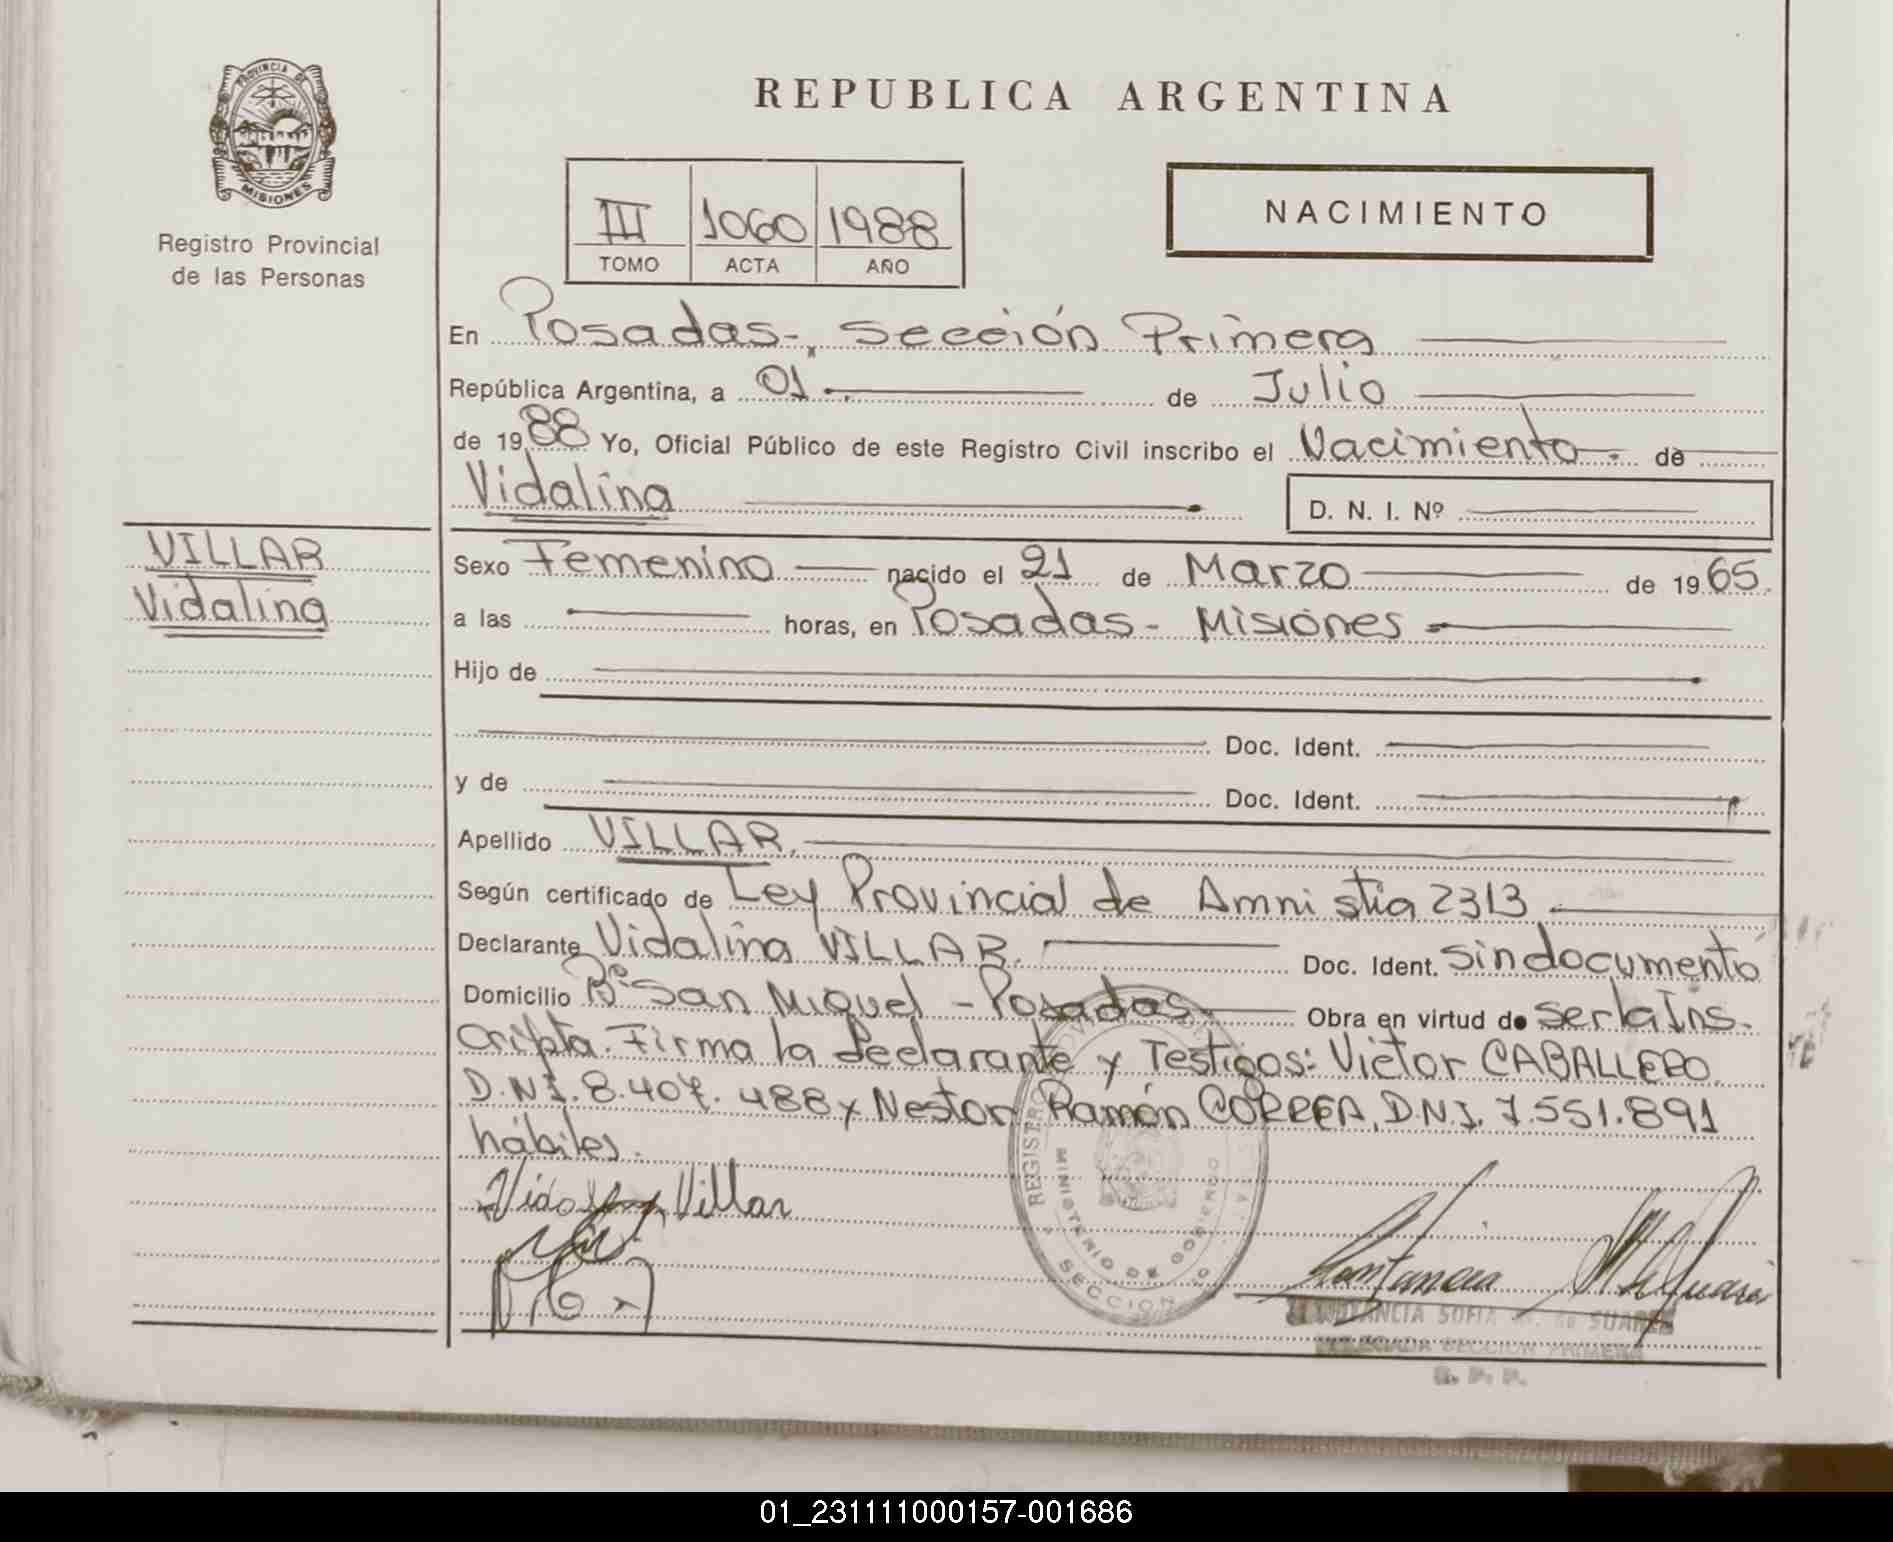 PROVINCIA DE
MISIONES
Registro Provincial
de las Personas
REPUBLICA ARGENTINA
III 1060 1988
TOMO ACTA AÑO
NACIMIENTO
En Posadas-, sección Primera
República Argentina, a 01 de Julio
de 1988 Yo, Oficial Público de este Registro Civil inscribo el Nacimiento de
Vidalina
D. N. I. Nº
VILLAR
Vidalina
Sexo Femenino nacido el 21 de Marzo de 1965
a las horas, en Posadas - Misiones
Hijo de
Doc. Ident.
y de Doc. Ident.
Apellido VILLAR.
Según certificado de Ley Provincial de Amnistia 2313
Declarante Vidalina VILLAR. Doc. Ident. sin documento
Domicilio Bº San Miguel - Posadas. Obra en virtud de ser la Ins-
cripta. Firma la declarante y Testigos: Victor CABALLERO
D.N.I. 8.407.488 y Nestor Ramón CORREA, D.N.I. 7.551.891
hábiles.
Vidalina Villar
REGISTRO
MINISTERIO DE GOBIERNO
SECCION
SOFIA de SUAREZ
SECCION PRIMERA
R. P. P.
01_231111000157-001686